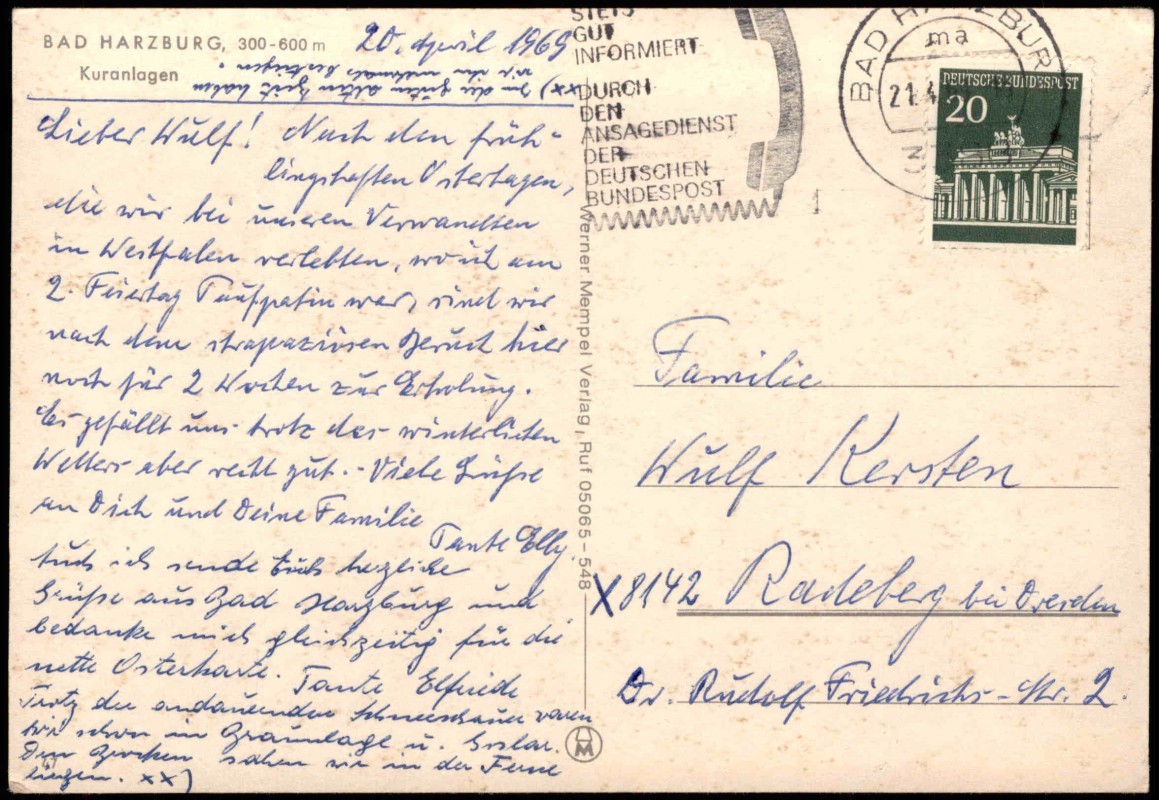 BAD HARZBURG, 300-600 m
Kuranlagen
20. April 1969
Lieber Wulf! Nach den früh-
lingshaften Ostertagen,
die wir bei unseren Verwandten
in Westfalen verlebten, wo ich am
2. Feiertag Taufpatin war, sind wir
nach dem strapaziösen Besuch hier
noch für 2 Wochen zur Erholung.
Es gefällt uns trotz des winterlichen
Wetters aber recht gut. - Viele Grüße
an Dich und Deine Familie
Tante Elly.
Auch ich sende Euch herzliche
Grüße aus Bad Harzburg und
bedanke mich gleichzeitig für die
nette Osterkarte. Tante Elfriede
Trotz der andauernden Schneeschauer waren
wir schon in Braunlage u. Goslar.
Den Brocken sahen wir in der Ferne
liegen. xx)
xx) In der guten alten Zeit haben
wir ihn mehrmals bestiegen.
Werner Mempel Verlag, Ruf 05065-548
M
STETS
GUT
INFORMIERT
DURCH
DEN
ANSAGEDIENST
DER
DEUTSCHEN
BUNDESPOST
BAD HARZBURG
ma
21.4
DEUTSCHE BUNDESPOST
20
Familie
Wulf Kersten
X 8142 Radeberg bei Dresden
Dr. Rudolf Friedrichs-Str. 2.